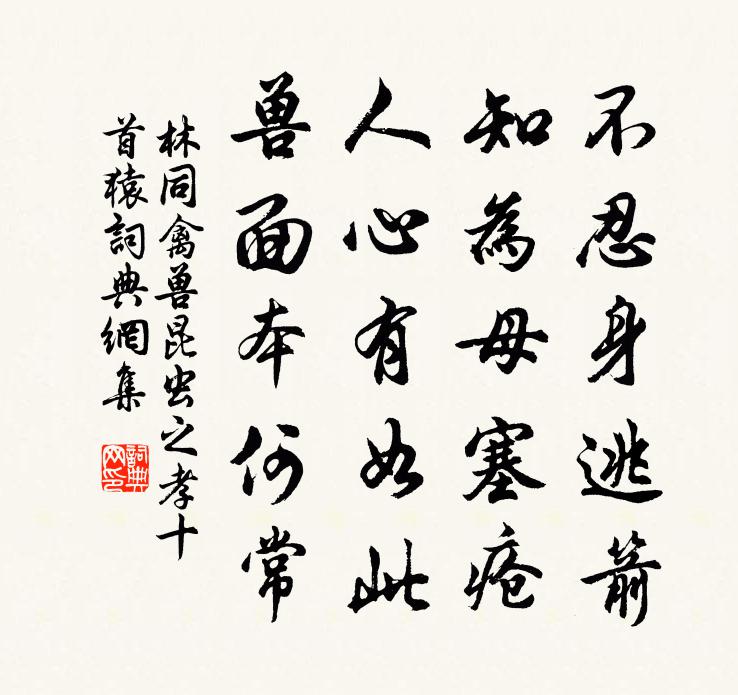 不忍身逃箭
知為母塞疮
人心有如此
兽面本何常
林同禽兽昆虫之孝十
首猿詞典網集
詞典
网印